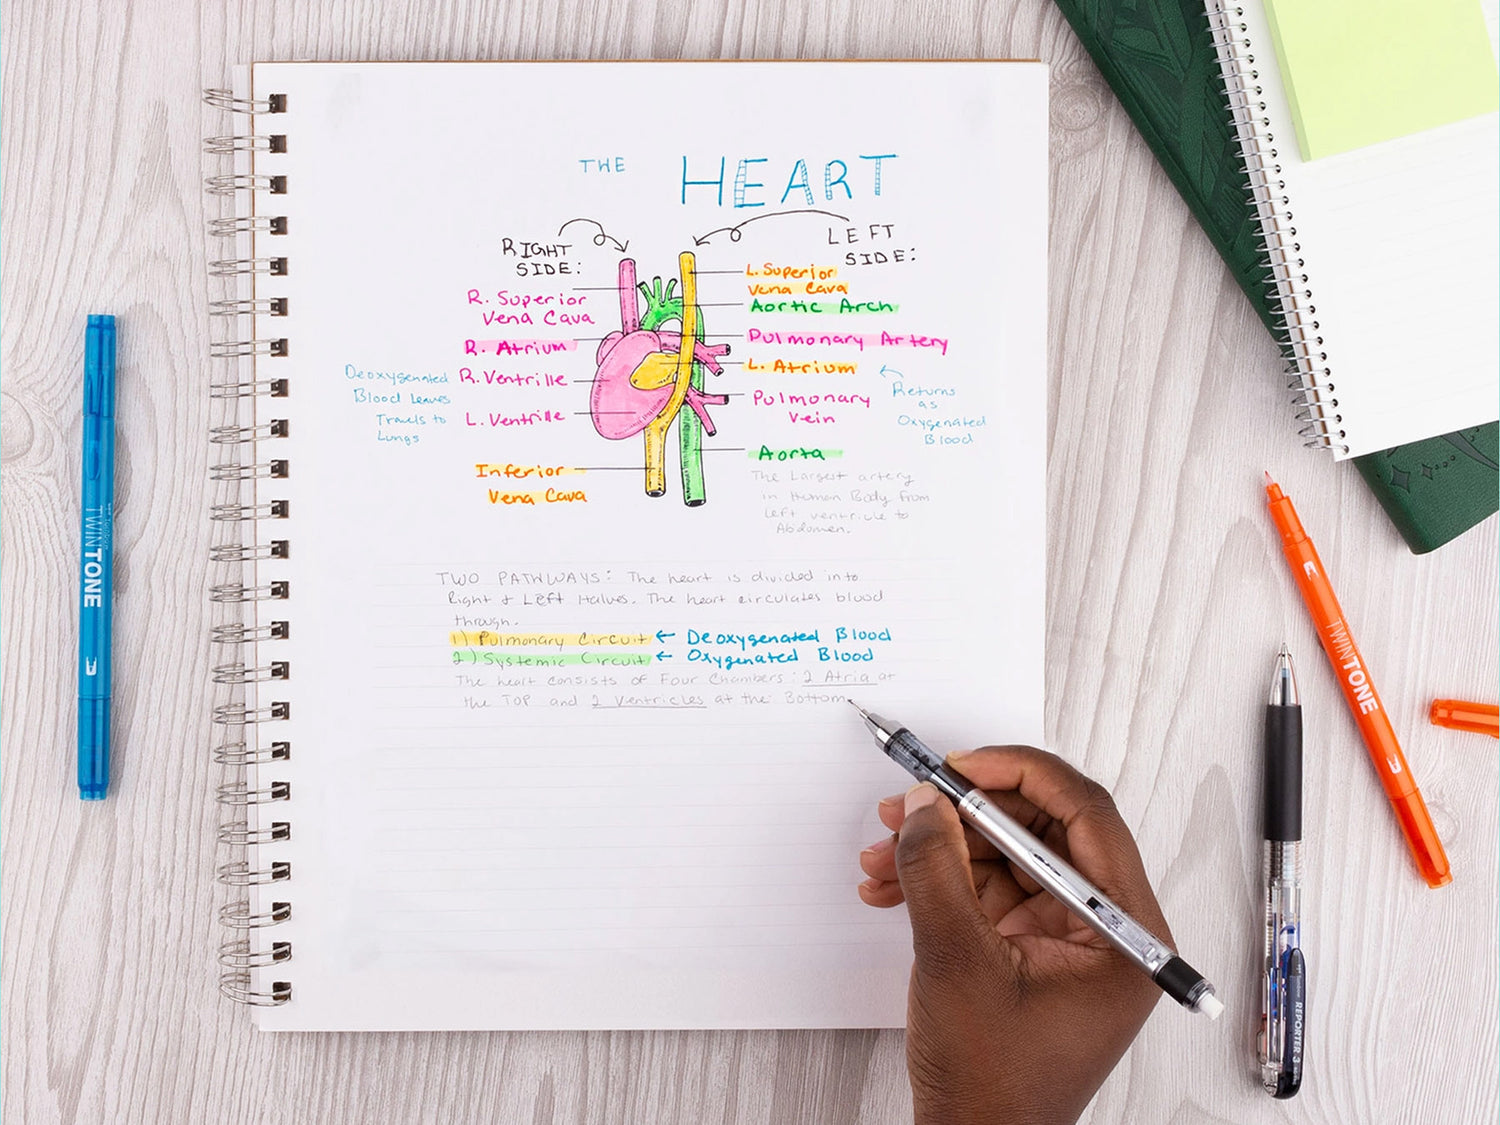 THE HEART
RIGHT
SIDE:
LEFT
SIDE:
R. Superior
Vena Cava
R. Atrium
R. Ventrille
L. Ventrille
Inferior
Vena Cava
Deoxygenated
Blood Leaves
Travels to
Lungs
L. Superior
Vena Cava
Aortic Arch
Pulmonary Artery
L. Atrium
Pulmonary
Vein
Aorta
The Largest artery
in Human Body from
Left ventricle to
Abdomen.
Returns
as
Oxygenated
Blood
TWO PATHWAYS: The heart is divided into
Right & Left Halves. The heart circulates blood
through.
1) Pulmonary Circuit ← Deoxygenated Blood
2) Systemic Circuit ← Oxygenated Blood
The heart consists of Four Chambers: 2 Atria at
the TOP and 2 Ventricles at the Bottom.
Tombow TWINTONE
TWINTONE
REPORTER 3